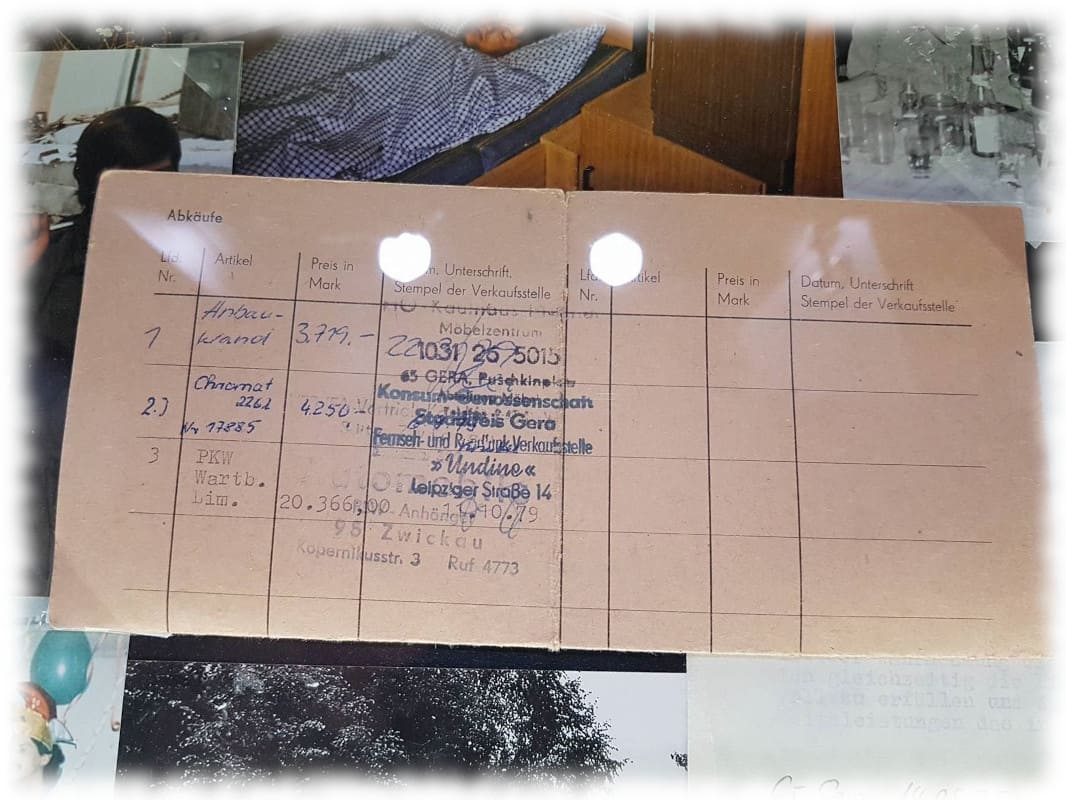 Abkäufe
Lfd. Nr.
Artikel
Preis in Mark
Unterschrift,
Stempel der Verkaufsstelle
Nr.
Preis in Mark
Datum, Unterschrift
Stempel der Verkaufsstelle
1
Anbau-
wand
3.719.-
Möbelzentrum
1031 26 5015
65 GERA, Puschkinplatz
2.)
Chromat
2262
Nr 17885
4250.-
Konsum-Genossenschaft
Stadtkreis Gera
Fernseh- und Rundfunk Verkaufsstelle
»Undine«
Leipziger Straße 14
3
PKW
Wartb.
Lim.
20.366,00
Anhänger
11.10.79
95 Zwickau
Kopernikusstr. 3 Ruf 4773
gleichzeitig die
zu erfüllen und
leistungen des